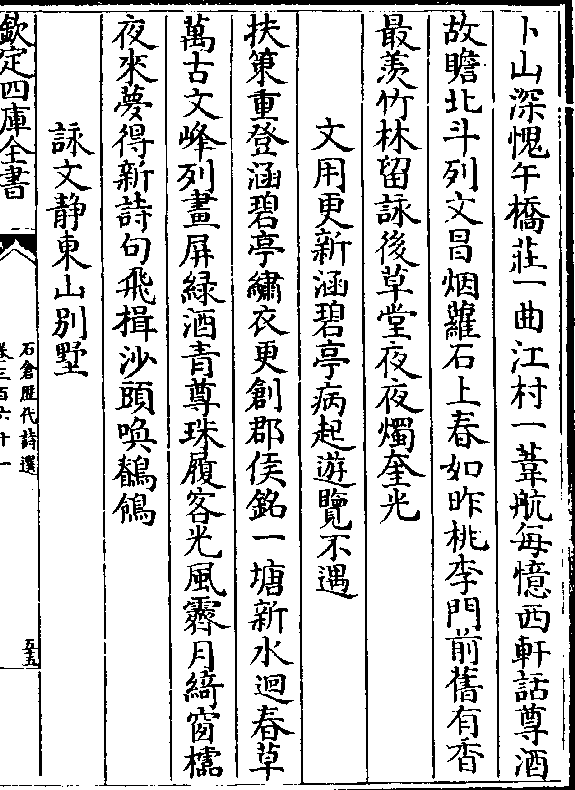 卜山深愧午橋莊一曲江村一葦航每憶西軒話尊酒
故瞻北斗列文昌烟蘿石上春如昨桃李門前舊有香
最羡竹林留詠後草堂夜夜燭奎光
文用更新涵碧亭病起遊覽不遇
扶策重登涵碧亭繡衣更創郡侯銘一塘新水迴春草
萬古文峰列畫屏緑酒青尊珠履客光風霽月綺窗櫺
夜來夢得新詩句飛揖沙頭喚鶺鴒
詠文静東山别墅
欽定四庫全書
石倉歴代詩選
卷三百六十一
五十五